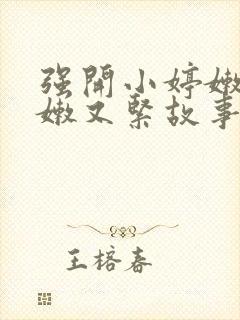 强開小婷嫩
嫩又緊故事
王榕春